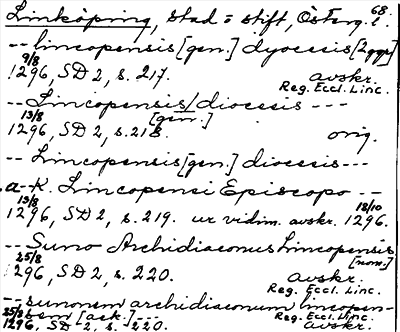 68.
Linköping, stad o stift, Österg. l.
-- lincopensis [gen.] dyocesis [2 ggr]
9/8
1296, SD 2, s. 217. avskr.
Reg. Eccl. Linc.
-- Lincopensis/diocesis ---
[gen.]
13/8
1296, SD 2, s. 218. orig.
-- Lincopensis [gen.] diocesis ---
a -- K. Lincopensi Episcopo --
13/8 18/10
1296, SD 2, s. 219. ur vidim. avskr. 1296.
-- Suno Archidiaconus Lincopensis
[nom.]
25/8
1296, SD 2, s. 220. avskr.
Reg. Eccl. Linc.
-- sunonem archidiaconum lincopen-
sem [ack.] --- Reg. Eccl. Linc.
25/8
1296, SD 2, s. 220. avskr.